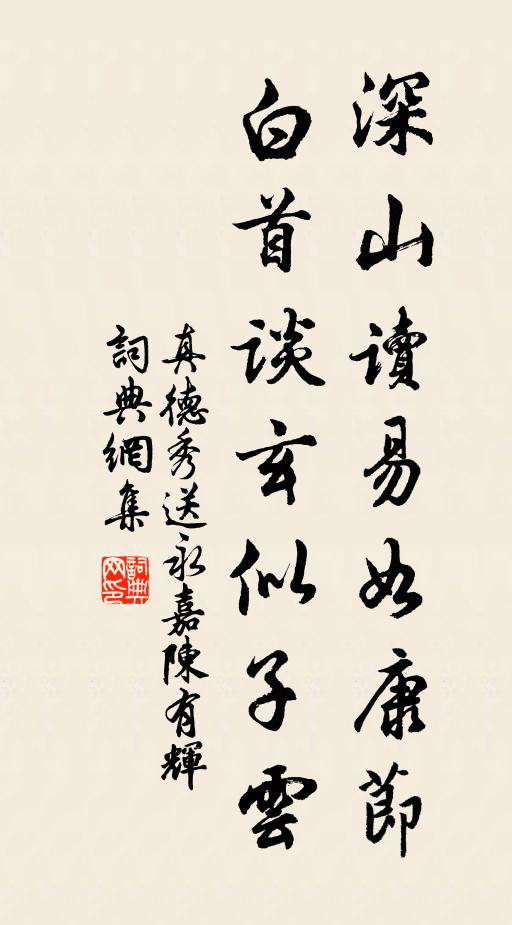 深山讀易如康節
白首談玄似子雲
真德秀送永嘉陳有輝
詞典網集
詞典网印